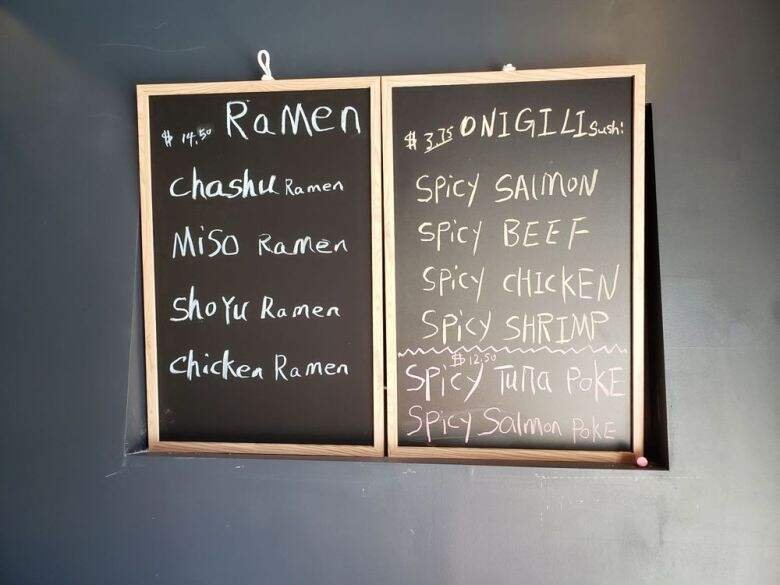 $ 14.50 Ramen
Chashu Ramen
Miso Ramen
Shoyu Ramen
Chicken Ramen
$ 3.75 ONIGILI Sushi
SPicy SAlMON
SPicy BEEF
SPicy CHICKEN
SPicy SHRIMP
$ 12.50
SPicy Tuna POKE
SPicy Salmon POKE